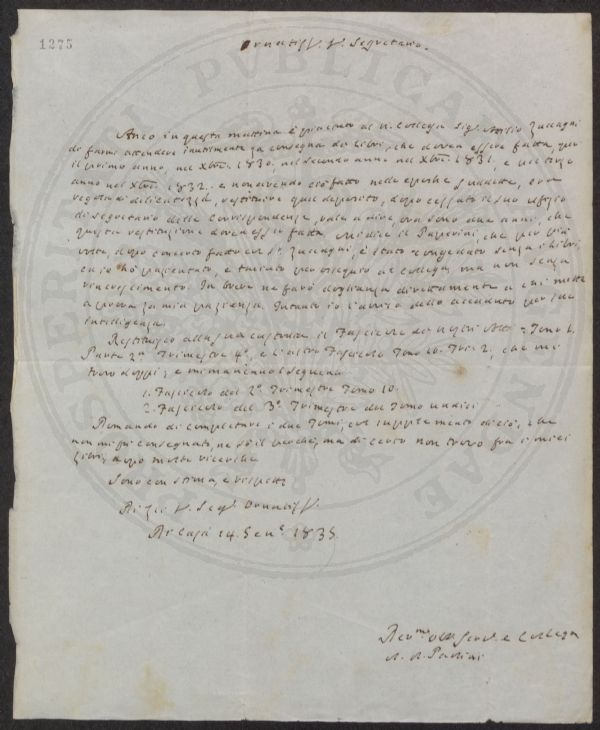 1275
Segretario.
Anco in questa mattina è piaciuto al n. Collega Sig. Attilio Zuccagni
di farmi attendere inutilmente la consegna dei libri, che dovea essere fatta, per
il primo anno, nel Xbre 1830, nel secondo anno nel Xbre 1831, e pel terzo
anno nel Xbre 1832. e non avendo ciò fatto nelle epoche suddette, era
regola di delicatezza, restituire quel deposito, dopo cessato il suo ufizio
di Segretario delle Corrispondenze, vale a dire ora sono due anni, che
questa restituzione dovea esser fatta. che per più
volte, dopo concerto fatto col Sr. Zuccagni, è stato congedato senza i libri,
ed io ho pazientato, e taciuto per riguardo al collega, ma non senza
rincrescimento. In breve ne farò doglianza direttamente a chi mette
a prova la mia pazienza. Intanto io l'avviso dello accaduto per sua
intelligenza.
Restituisco alla sua custodia il Fascicolo dei nostri Atti = Tomo 6.
Parte 2a Trimestre 4o, e l'altro Fascicolo Tomo 10. Tri. 2. che mi
trovo doppi; e mi mancano i seguenti
1. Fascicolo del 2o Trimestre Tomo 10.
2. Fascicolo del 3o Trimestre del Tomo undici
Domando di completare i due Tomi, col supplemento di ciò, che
non mi fu consegnato, ne so il perchè; ma di certo non trovo fra i miei
libri, dopo molte ricerche.
Sono con stima, e rispetto
Di Lei
Di Casa 14. Gen. 1835.
Devmo Obb. Serv. e Collega